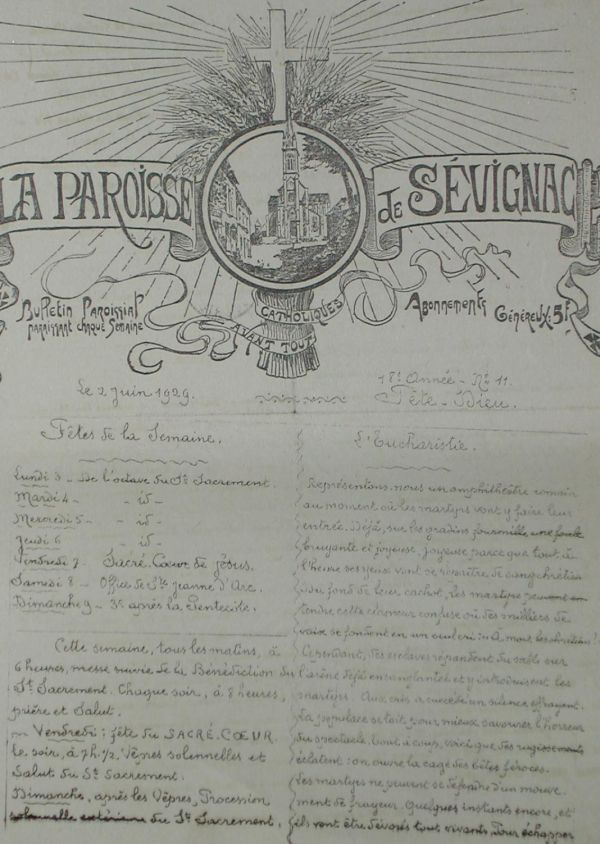 LA PAROISSE
de SÉVIGNAC
Bulletin Paroissial
paraissant chaque semaine
CATHOLIQUES
AVANT TOUT
Abonnements
Généreux: 5f
Le 2 Juin 1929.
18e Année - No 11.
Fête-Dieu.
Fêtes de la Semaine.
Lundi 3 - De l'octave du St Sacrement.
Mardi 4 - - id -
Mercredi 5 - - id -
Jeudi 6 - id -
Vendredi 7 - Sacré-Cœur de Jésus.
Samedi 8 - Office de Ste Jeanne d'Arc.
Dimanche 9 - 3e après la Pentecôte.
Cette semaine, tous les matins, à
6 heures, messe suivie de la Bénédiction du
St Sacrement. Chaque soir, à 8 heures,
prière et Salut.
- Vendredi: fête du SACRÉ-CŒUR.
Le soir, à 7h. 1/2, Vêpres solennelles et
Salut du St Sacrement.
Dimanche, après les Vêpres, Procession
du St Sacrement.
L'Eucharistie.
Représentons-nous un amphithéâtre romain
au moment où les martyrs vont y faire leur
entrée. Déjà, sur les gradins fourmille une foule
bruyante et joyeuse, joyeuse parce que tout à
l'heure ses yeux vont se repaître de sang chrétien
Du fond de leur cachot, les martyrs peuvent en-
tendre cette clameur confuse où des milliers de
voix se fondent en un seul cri: "A mort les chrétiens!"
Cependant, des esclaves répandent du sable sur
l'arène déjà ensanglantée et y introduisent les
martyrs. Aux cris a succédé un silence effrayant.
La populace se tait pour mieux savourer l'horreur
du spectacle. Tout à coup, voici que des rugissements
éclatent: on ouvre la cage des bêtes féroces.
Les martyrs ne peuvent se défendre d'un mouve-
ment de frayeur. Quelques instants encore, et
ils vont être dévorés tout vivants. Pour échapper